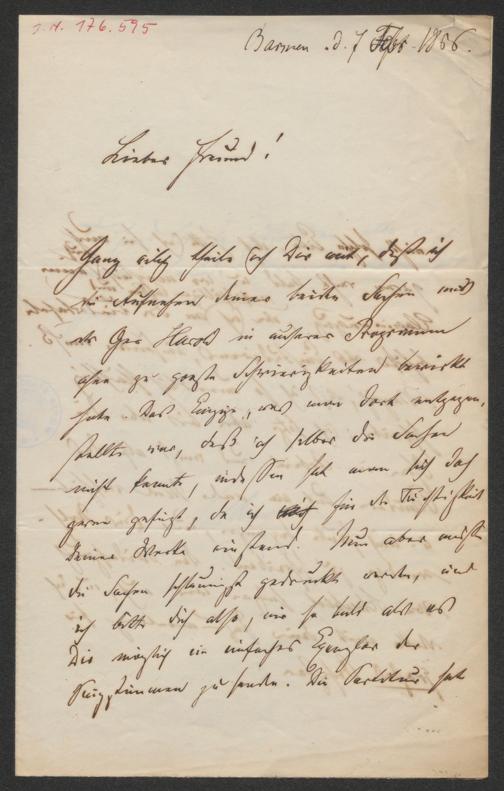 J.N. 176.595
Barmen d. 7 Febr. 1866.
Lieber Freund!
Ganz eilig theile ich Dir mit, daß ich
die Aufnahme Deiner beiden Sachen und
des Ges. Harold in unserer Programm
ohne zu große Schwierigkeiten bewirkt
habe. Das Einzige, was man dort entgegen
stellte war, daß ich selber die Sachen
nicht kannte, indessen hat man sich doch
gerne gefügt, da ich für die Tüchtigkeit
Deiner Werke einstand. Nun aber müssen
die Sachen schleunigst gedruckt werden, und
ich bitte Dich also, mir so bald als es
Dir möglich ein einfaches Exemplar der
Singstimmen zu senden. Die Partitur hat